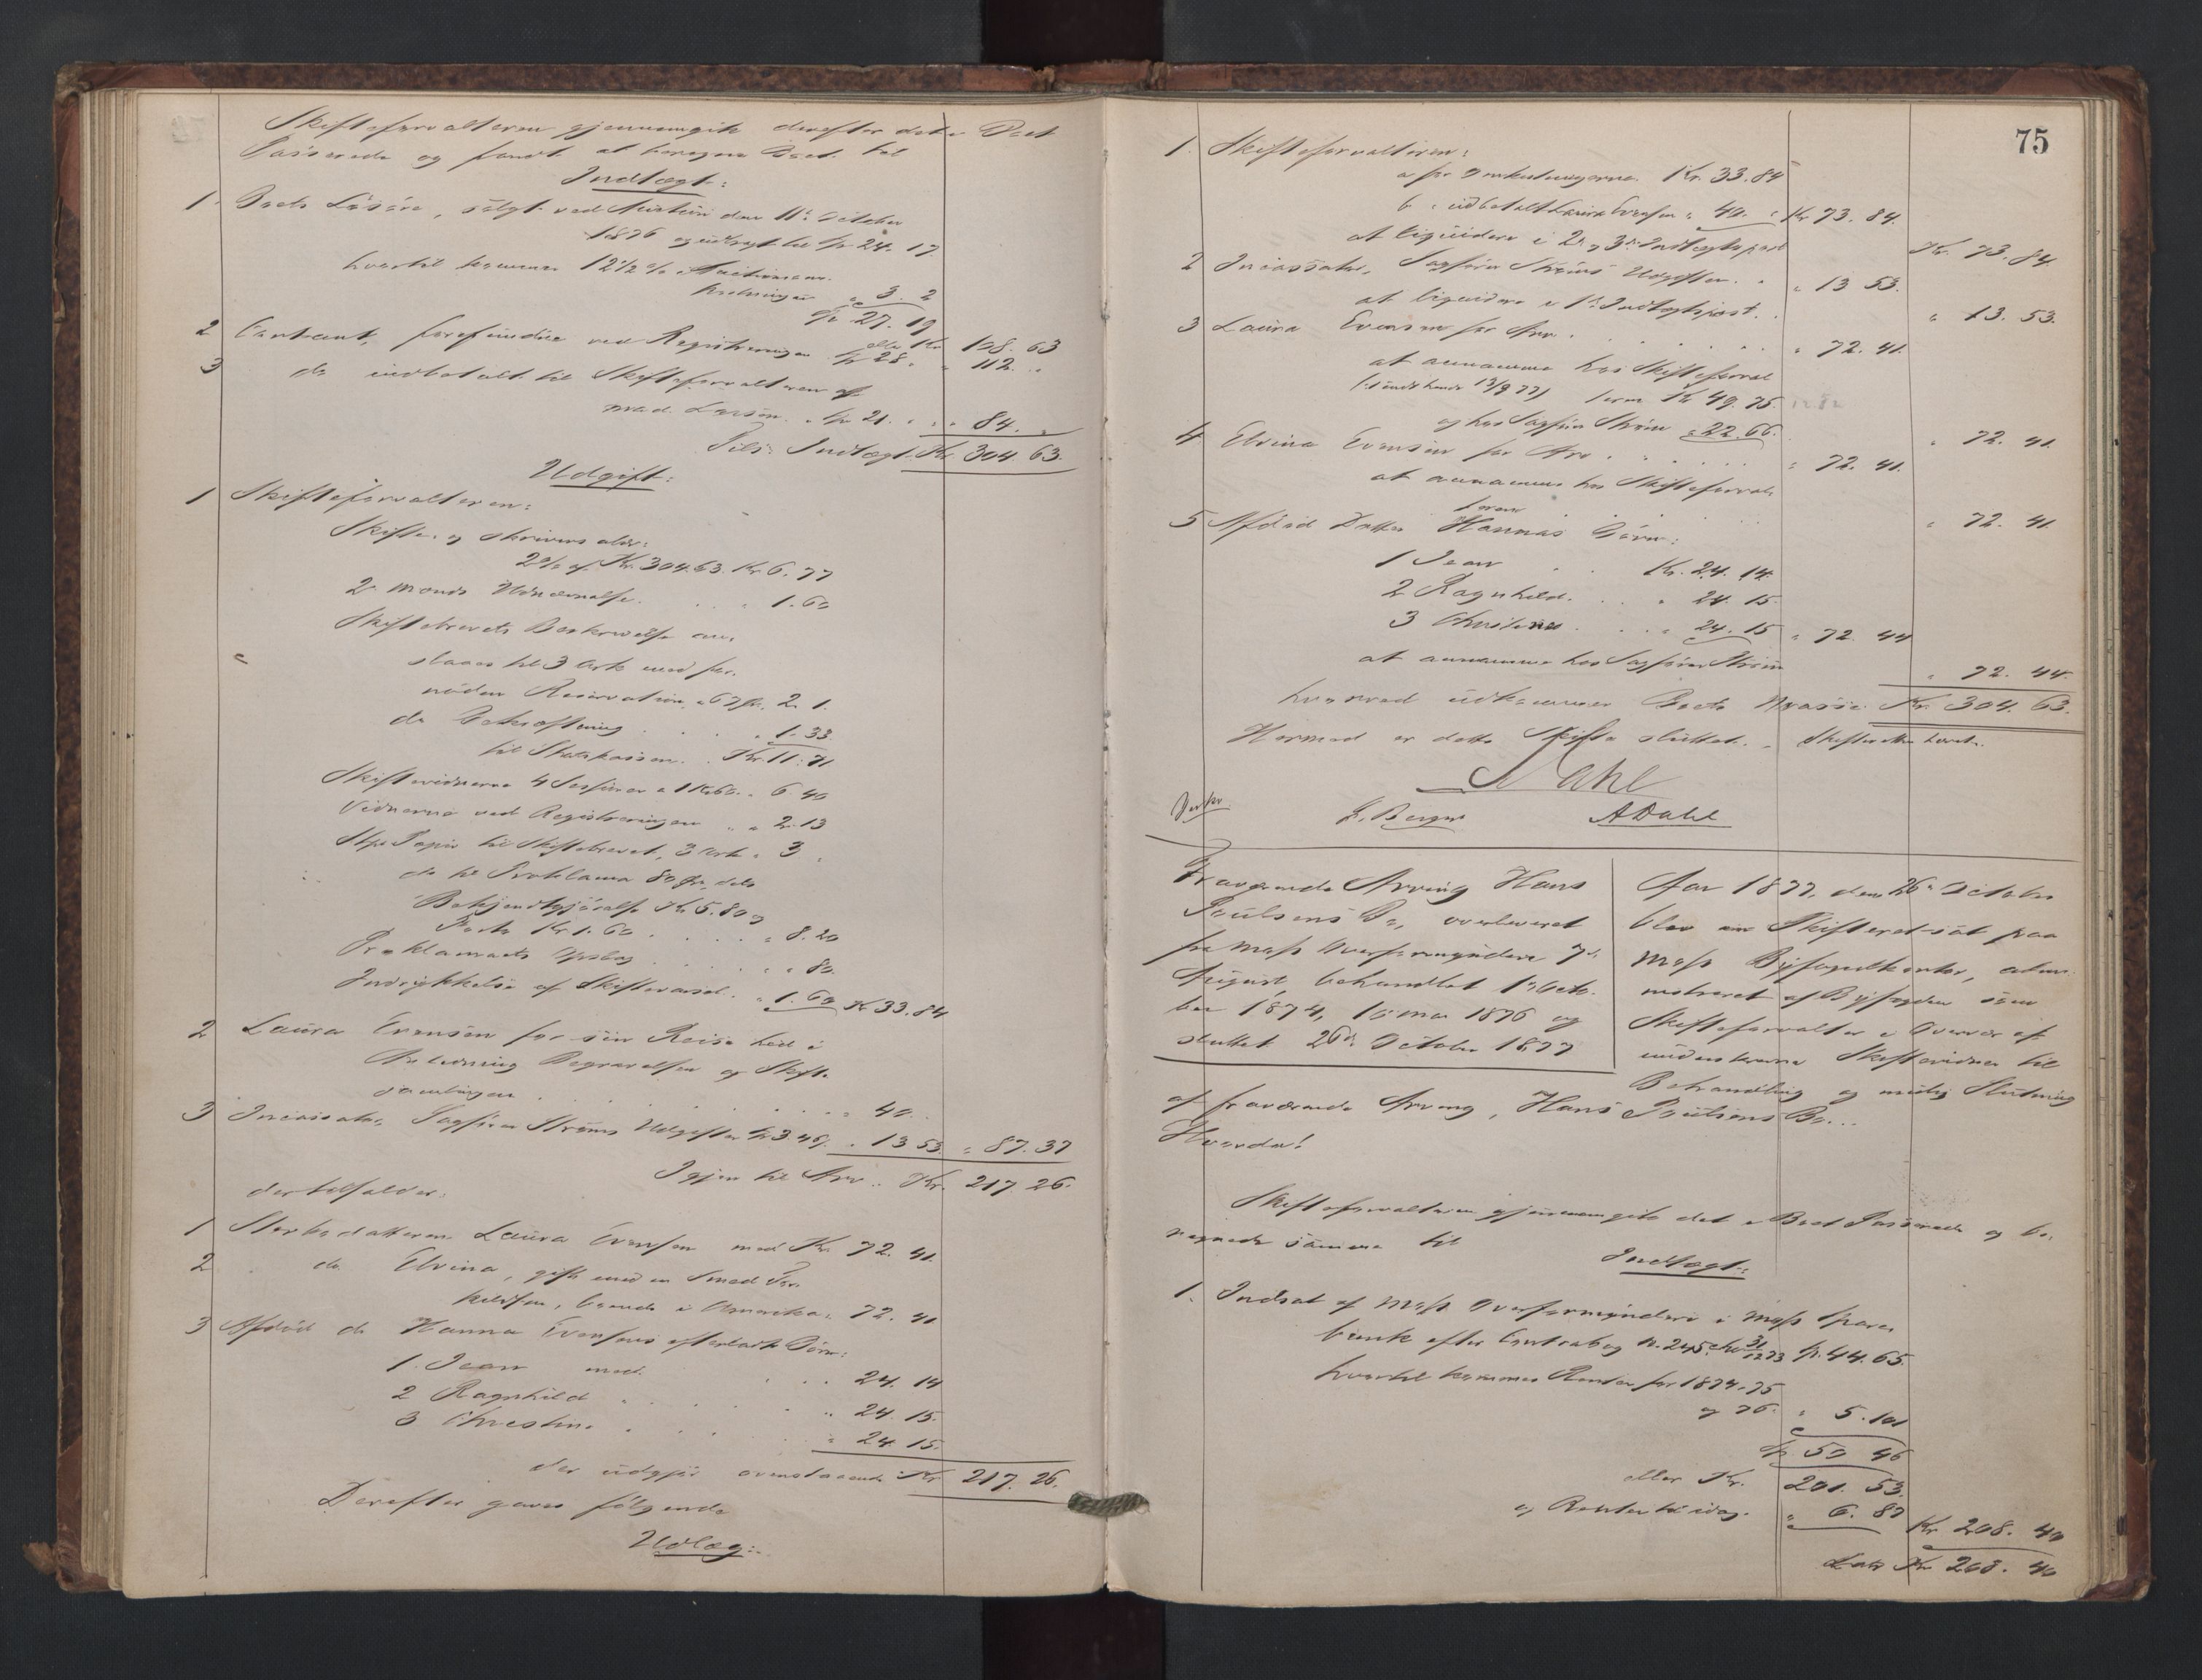 Skifteforvalteren gjennemgik derefter det i Boet
Passerede og fandt at beregne Boet til
Indtægt:
1. Boets Løsøre, solgt ved Auktion den 11te October
1876 og udbragt til Sp 24. 17
hvortil kommer 12 1/2 % Auctionsom-
kostninger " 3. 2
Sp 27. 19
eller Kr 108. 63
2 Contant, forefundne ved Registreringen Sp 28 " 112. "
3 do indbetalt til Skifteforvalteren af
Mad. Larsen. Sp 21. " 84. "
Tils: Indtægt Kr. 304. 63.
Udgift:
1 Skifteforvalteren:
Skifte- og Skriversalær:
2 % af Kr. 304.63. Kr. 6. 77
2 Mænds Udnævnelse. . . " 1. 60
Skiftebrevets Beskrivelse an-
slaaes til 3 Ark med for-
nøden Reservation, a 67 Øre, 2. 1.
do Bekræftning . . . . 1. 33.
til Statskassen. . Kr. 11. 71
Skiftevidnerne 4 Sessioner a 1 Kr 60. " 6. 40
Vidnerne ved Registreringen " " 2. 13
Stp. Papir til Skiftebrevet, 3 Ark " 3 "
do til Proklama 80 Øre, dets
Bekjendtgjørelse Kr 5. 80 og
Porto Kr 1. 60 . . . . " 8. 20
Proklamaets Opslag . . . " " 80.
Indrykkelse af Skiftevarsel. " 1. 60 Kr 33. 84
2 Laura Evensen for sin Reise hid i
Anledning Begravelsen og Skifte-
samlingen . . . . . . . " 40 . .
3 Incassator, Sagfører Strøms Udgifter Sp 3. 46. " 13 53. " 87. 37
Igjen til Arv.. Kr. 217. 26.
der tilfalder:
1 Sterbodatteren Laura Evensen med Kr. 72. 41.
2 do Elvina, gift med en Smed Tor-
kildsen, boende i Amerika. 72. 41
3 Afdød do Hanna Evensens efterladte Børn:
1. Jean med. . . . 24. 14
2 Ragnhild . . . . " 24. 15.
3 Christine . . . . " 24. 15.
der udgjør ovenstaaende Kr. 217. 26.
Derefter gaves følgende
Udlæg:
75
1. Skifteforvalteren:
a for Omkostningerne. Kr. 33. 84
b " udbetalt Laura Evensen " 40. " Kr 73. 84.
at liquidere i 2den og 3die Indtægtspost Kr. 73. 84
2 Incassator, Sagfører Strøms Udgifter. . " 13 53.
at liquidere i 1ste Indtægtspost. . " 13. 53.
3 Laura Evensen for Arv . . . . . " 72. 41.
at annamme hos Skifteforval-
(: sendt hende 13/9 77) teren Kr 49. 75.
og hos Sagfører Strøm " 22. 66. " 72. 41.
4 Elvina Evensen for Arv . . . . " 72. 41.
at annamme hos Skifteforval-
teren . . . . " 72. 41.
5 Afdød Datter Hannas Børn:
1 Jean . . Kr. 24. 14.
2 Ragnhild. . . " 24. 15.
3 Christine . . . " 24. 15 " 72. 44
at annamme hos Sagfører Strøm " 72. 44.
hvorved udkommer Boets Masse Kr. 304. 63.
Hermed er dette Skifte sluttet. Skifteretten hævet.
Dahl
J. Berger ADahl
Fraværende Arving Hans
Poulsens Bo, overleveret
fra Moss Overformynderi 7de
August, behandlet 1ste Octo-
ber 1874, 10 Mai 1876 og
sluttet 26de October 1877
Aar 1877, den 26de October
blev en Skifteret sat paa
Moss Byfogedkontor, admi-
nistreret af Byfogden som
Skifteforvalter i Overvær af
underskrevne Skiftevidner til
Behandling og mulig Slutning
af fraværende Arving, Hans Poulsens Bo...
Hvorda!
Skifteforvalteren gjennemgik det i Boet Passerede og be-
regnede samme til
Indtægt:
1. Indsat af Moss Overformynderi i Moss Spare-
bank efter Contrabog N. 245 31/12 73 Sp. 44. 65.
hvortil kommer Renter for 1874, 75
og 76. " 5. 101
Sp. 50 46
eller Kr. 201. 53.
og Renter til idag. " 6. 87 Kr 208. 40
Lat. Kr 208. 40